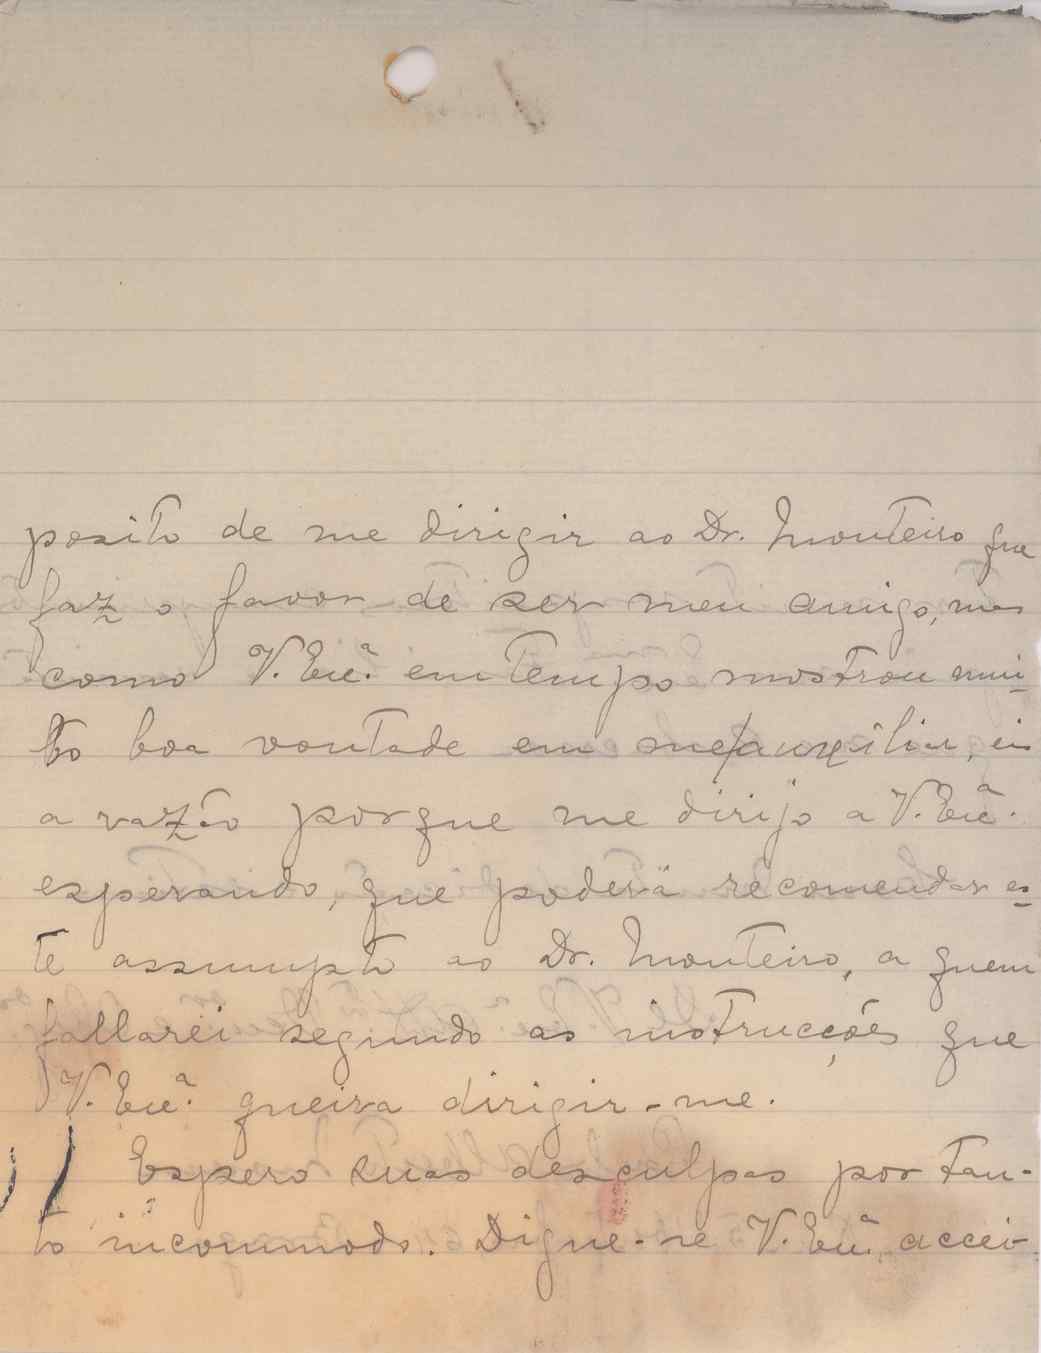 posito de me dirigir ao Dr. Monteiro que
faz o favor de ser meu amigo, mas
como V. Exc.ª em tempo mostrou mui-
to boa vontade em me auxiliar, eis
a razão porque me dirijo a V. Exc.ª
esperando, que poderá recomendar es-
te assumpto ao Dr. Monteiro, a quem
fallarei segundo as instrucções que
V. Exc.ª queira dirigir-me.
Espero suas desculpas por tan-
to incommodo. Digne-se V. Exc.ª accei-